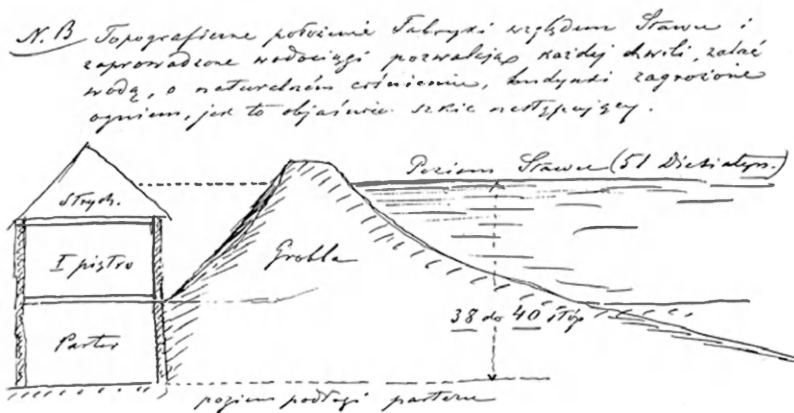 N.B Topograficzne położenie Fabryki względem Stawu i
zaprowadzone wodociągi pozwalają każdej chwili, zalać
wodą, o naturalném ciśnieniu, budynki zagrożone
ogniem, jak to objaśnia szkic następujący.
Poziom Stawu (51
Strych.
I piętro
Grobla
38 do 40 stóp
Parter
poziom podłogi parteru